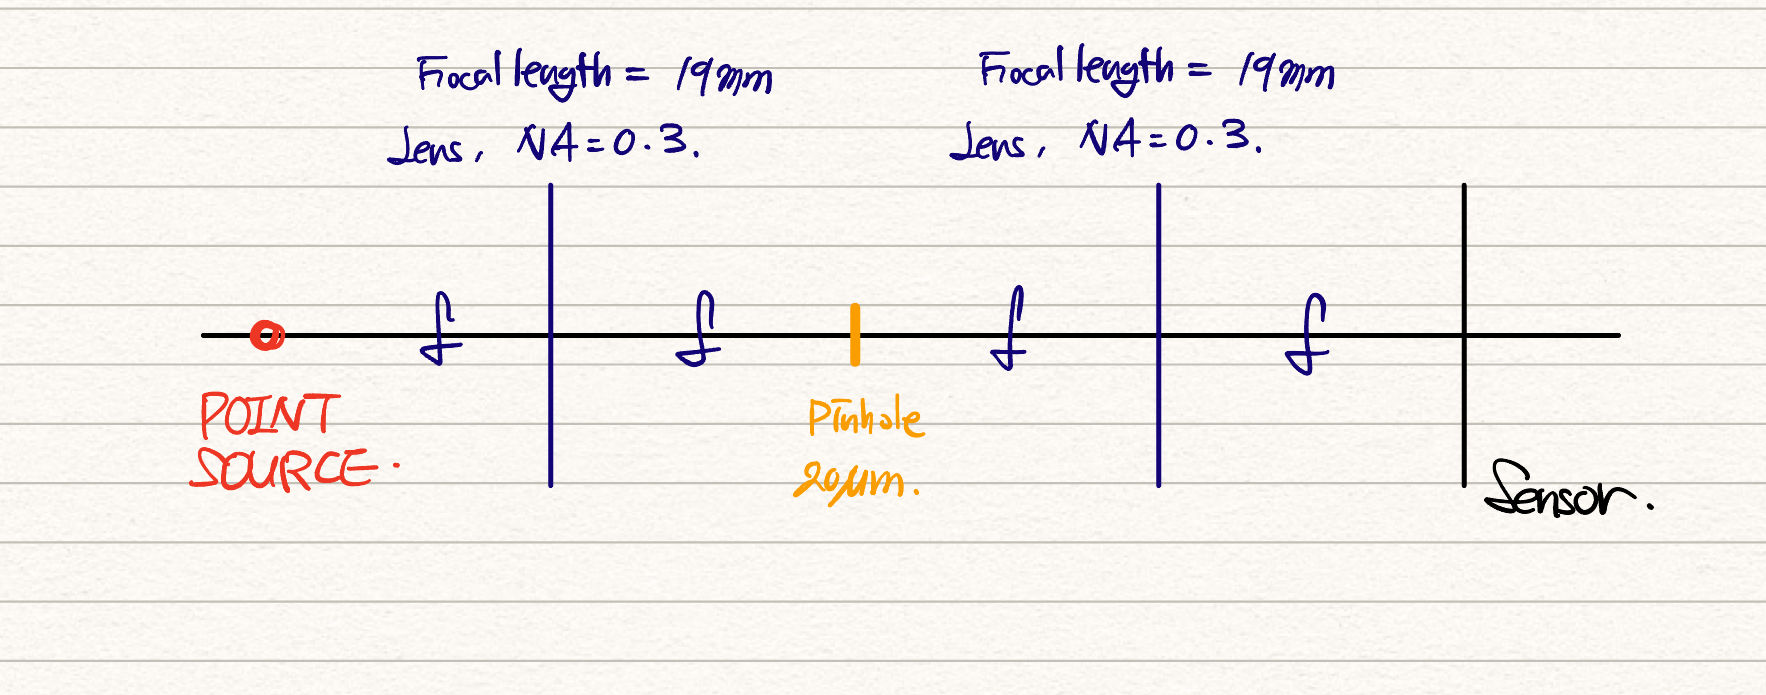 Focal length = 19mm
Lens, NA=0.3.
Focal length = 19mm
Lens, NA=0.3.
f
f
f
f
POINT
SOURCE.
Pinhole
20μm.
Sensor.